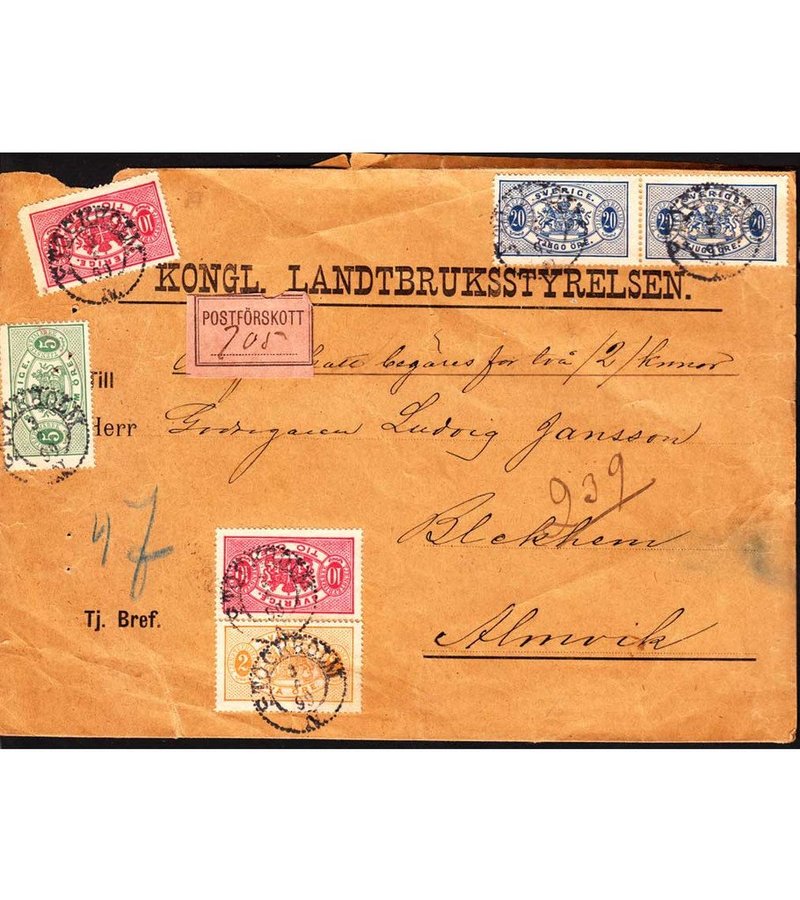 SVERIGE.
20 20
TJUGO ÖRE.
SVERIGE.
20 20
TJUGO ÖRE.
10
TIO
SVERIGE.
STOCKHOLM
KONGL. LANDTBRUKSSTYRELSEN.
POSTFÖRSKOTT
705
begäres för två /2/ kronor
5
5
STOCKHOLM
Till
Herr Godsegaren Ludvig Jansson
939
Blekhem
47
Tj. Bref.
Almvik
10
TIO
SVERIGE
STOCKHOLM
2
STOCKHOLM